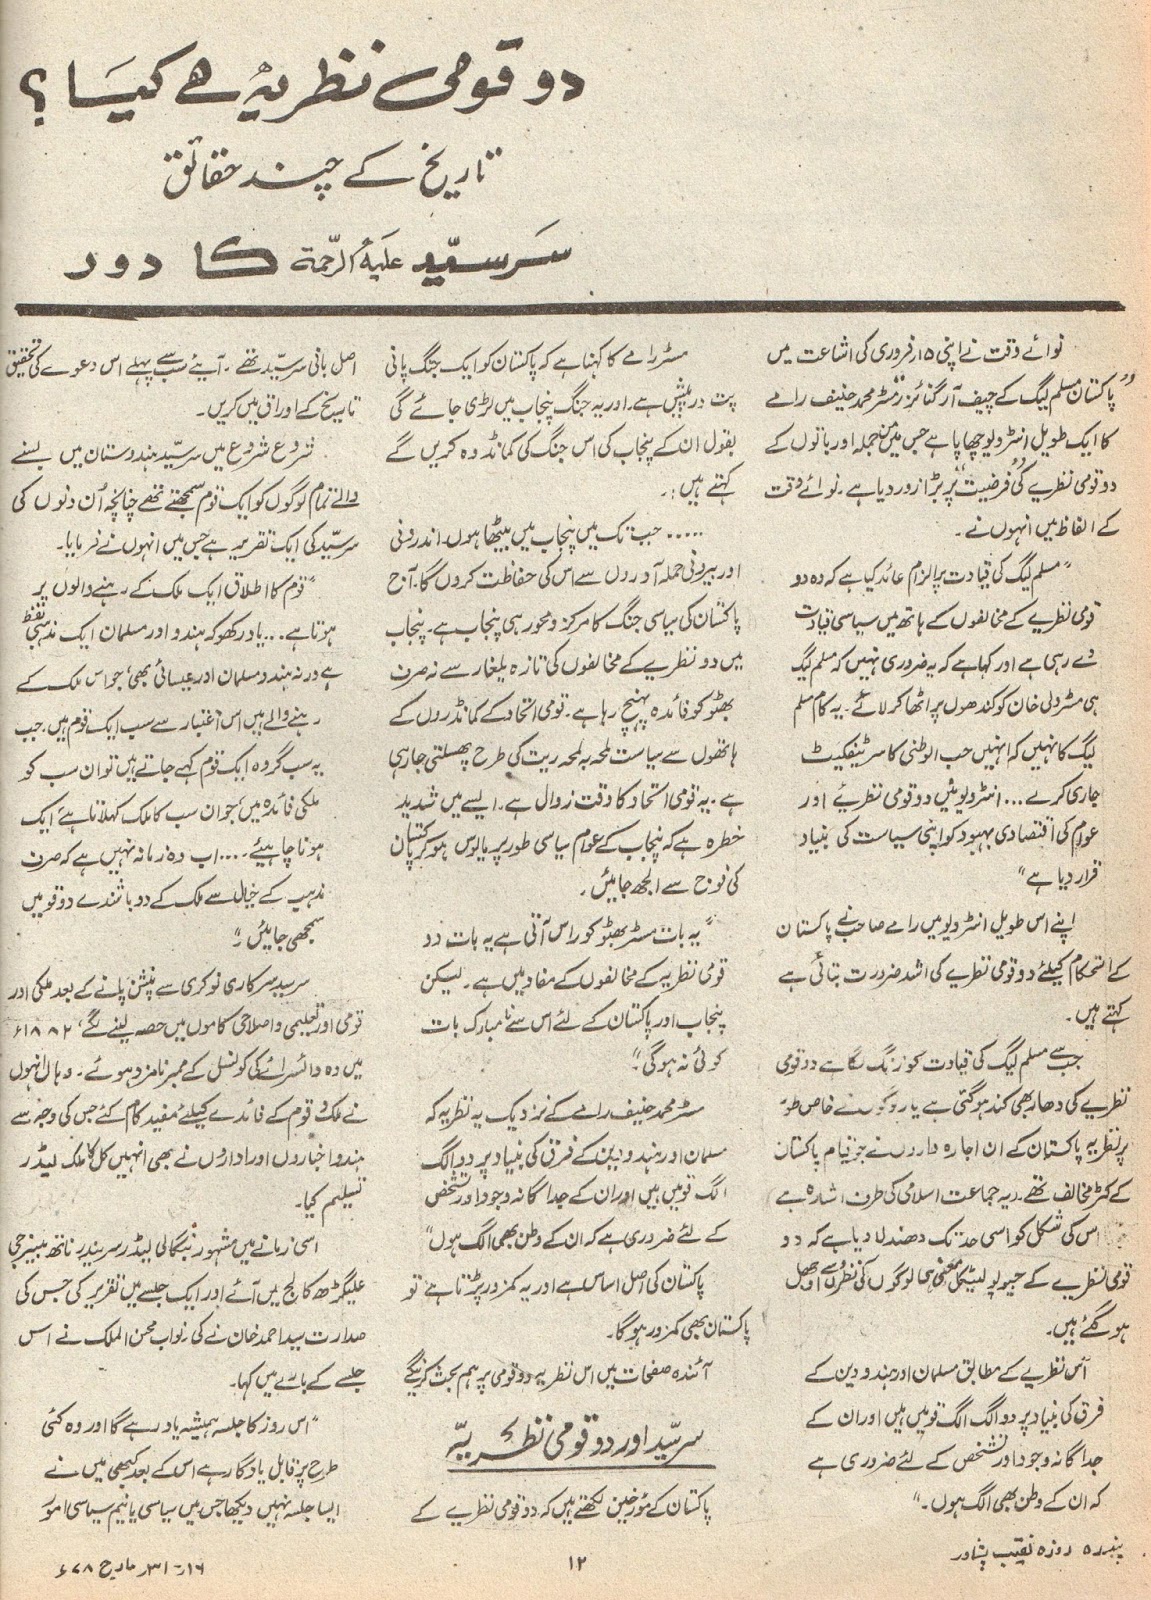 دو قومی نظریہ ہے کیسا ؟
تاریخ کے چند حقائق
سر سیّد علیہ الرّحمۃ کا دور
نوائے وقت نے اپنی ۱۵ر فروری کی اشاعت میں
پاکستان مسلم لیگ کے چیف آرگنائزر مسٹر محمد حنیف رامے
کا ایک طویل انٹرویو چھاپا ہے جس میں منجملہ اور باتوں کے
دو قومی نظریے کی "فرضیت" پر بڑا زور دیا ہے۔ نوائے وقت
کے الفاظ میں انہوں نے۔
"مسلم لیگ کی قیادت پر الزام عائد کیا ہے کہ وہ دو
قومی نظریے کے مخالفوں کے ہاتھ میں سیاسی قیادت
دے رہی ہے اور کہا ہے کہ یہ ضروری نہیں کہ مسلم لیگ
ہی مسٹر ولی خان کو کندھوں پر اٹھا کر لائے۔ یہ کام مسلم
لیگ کا نہیں کہ انہیں حب الوطنی کا سرٹیفکیٹ
جاری کرے ... انٹرویو میں دو قومی نظریئے اور
عوام کی اقتصادی بہبود کو اپنی سیاست کی بنیاد
قرار دیا ہے"
اپنے اس طویل انٹرویو میں رامے صاحب نے پاکستان
کے استحکام کیلئے دو قومی نظریے کی اشد ضرورت بتائی ہے
کہتے ہیں۔
جب سے مسلم لیگ کی قیادت کو زنگ لگا ہے دو قومی
نظریے کی دھار بھی کند ہو گئی ہے نے خاص طور
پر نظریہ پاکستان کے ان اجارہ داروں نے جو قیام پاکستان
کے کٹر مخالف تھے۔ (یہ جماعت اسلامی کی طرف اشارہ ہے
اس کی شکل کو اسی حد تک دھندلا دیا ہے کہ دو
قومی نظریے کے جیو پولیٹیکل معنی ہی لوگوں کی نظروں سے اوجھل
ہو گئے ہیں۔
اس نظریے کے مطابق مسلمان اور ہندو دین کے
فرق کی بنیاد پر دو الگ الگ قومیں ہیں اور ان کے
جداگانہ وجود اور تشخص کے لئے ضروری ہے
کہ ان کے وطن بھی الگ ہوں۔"
مسٹر رامے کا کہنا ہے کہ پاکستان کو ایک جنگ پانی
پت درپیش ہے۔ اور یہ جنگ پنجاب میں لڑی جائے گی
بقول ان کے پنجاب کی اس جنگ کی کمانڈ وہ کریں گے
کہتے ہیں :۔
..... جب تک میں پنجاب میں بیٹھا ہوں۔ اندرونی
اور بیرونی حملہ آوروں سے اس کی حفاظت کروں گا۔ آج
پاکستان کی سیاسی جنگ کا مرکز و محور ہی پنجاب ہے۔ پنجاب
میں دو نظریے کے مخالفوں کی تازہ یلغار سے نہ صرف
بھٹو کو فائدہ پہنچ رہا ہے۔ قومی اتحاد کے کمانڈروں کے
ہاتھوں سے سیاست لمحہ بہ لمحہ ریت کی طرح پھسلتی جا رہی
ہے۔ یہ قومی اتحاد کا وقت زوال ہے۔ ایسے میں شدید
خطرہ ہے کہ پنجاب کے عوام سیاسی طور پر مایوس ہو کر پاکستان
کی فوج سے الجھ جائیں۔
"یہ بات مسٹر بھٹو کو راس آتی ہے یہ بات دو
قومی نظریہ کے مخالفوں کے مفاد میں ہے۔ لیکن
پنجاب اور پاکستان کے لئے اس سے نامبارک بات
کوئی نہ ہو گی"۔
مسٹر محمد حنیف رامے کے نزدیک یہ نظریہ کہ
مسلمان اور ہندو دین کے فرق کی بنیاد پر دو الگ
الگ قومیں ہیں اور ان کے جداگانہ وجود اور تشخص
کے لئے ضروری ہے کہ ان کے وطن بھی الگ ہوں"
پاکستان کی اصل اساس ہے اور یہ کمزور پڑتا ہے تو
پاکستان بھی کمزور ہو گا۔
آئندہ صفحات میں اس نظریہ دو قومی پر ہم بحث کرینگے
سر سیّد اور دو قومی نظریہ
پاکستان کے مؤرخین لکھتے ہیں کہ دو قومی نظریے کے
اصل بانی سر سیّد تھے۔ آیئے سب سے پہلے اس دعوے کی تحقیق
تاریخ کے اوراق میں کریں۔
شروع شروع میں سر سیّد ہندوستان میں بسنے
والے تمام لوگوں کو ایک قوم سمجھتے تھے چنانچہ اُن دنوں کی
سر سیّد کی ایک تقریر ہے جس میں انہوں نے فرمایا۔
"قوم کا اطلاق ایک ملک کے رہنے والوں پر
ہوتا ہے ... یاد رکھو کہ ہندو اور مسلمان ایک مذہبی لفظ
ہے ورنہ ہندو مسلمان اور عیسائی بھی، جو اس ملک کے
رہنے والے ہیں اس اعتبار سے سب ایک قوم ہیں۔ جب
یہ سب گروہ ایک قوم کہے جاتے ہیں تو ان سب کو
ملکی فائدہ میں، جو ان سب کا ملک کہلاتا ہے، ایک
ہونا چاہیئے .... اب وہ زمانہ نہیں ہے کہ صرف
مذہب کے خیال سے ملک کے دو باشندے دو قومیں
سمجھی جائیں"۔
سر سید سرکاری نوکری سے پنشن پانے کے بعد ملکی اور
قومی اور تعلیمی و اصلاحی کاموں میں حصہ لینے لگے، ۱۸۸۲ء
میں وہ وائسرائے کی کونسل کے ممبر نامزد ہوئے۔ وہاں انہوں
نے ملک و قوم کے فائدے کیلئے مفید کام کئے جس کی وجہ سے
ہندو اخباروں اور اداروں نے بھی انہیں کل کا ملک لیڈر
تسلیم کیا۔
اسی زمانے میں مشہور بنگالی لیڈر سریندر ناتھ بینرجی
علیگڑھ کالج میں آئے اور ایک جلسے میں تقریر کی جس کی
صدارت سید احمد خان نے کی۔ نواب محسن الملک نے اس
جلسے کے بارے میں کہا۔
"اس روز کا جلسہ ہمیشہ یاد رہے گا اور وہ کئی
طرح پر قابل یادگار رہے اس کے بعد کبھی میں نے
ایسا جلسہ نہیں دیکھا جس میں سیاسی یا نیم سیاسی امور
پندرہ روزہ نقیب پشاور
۱۲
۱۶ر - ۳۱ر مارچ ۷۸ء